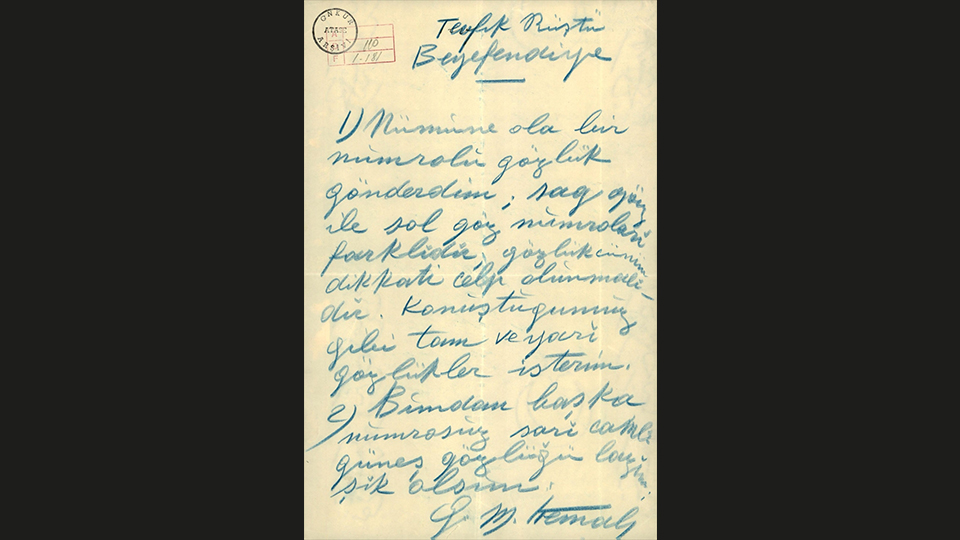 GNKUR
ATASE
ARŞİVİ
110
1-181
Tevfik Rüştü
Beyefendiye
1) Nümüne ola bir
numrolu gözlük
gönderdim; sag göz
ile sol göz numrolari
farklidir; gözlükcünün
dikkati celp olunmali-
dir. Konuştugumuz
gibi tam ve yari
gözlükler isterim.
2) Bundan başka
numrosuz sari camli
güneş gözlüğü lazim;
şik olsun.
G. M. Kemal